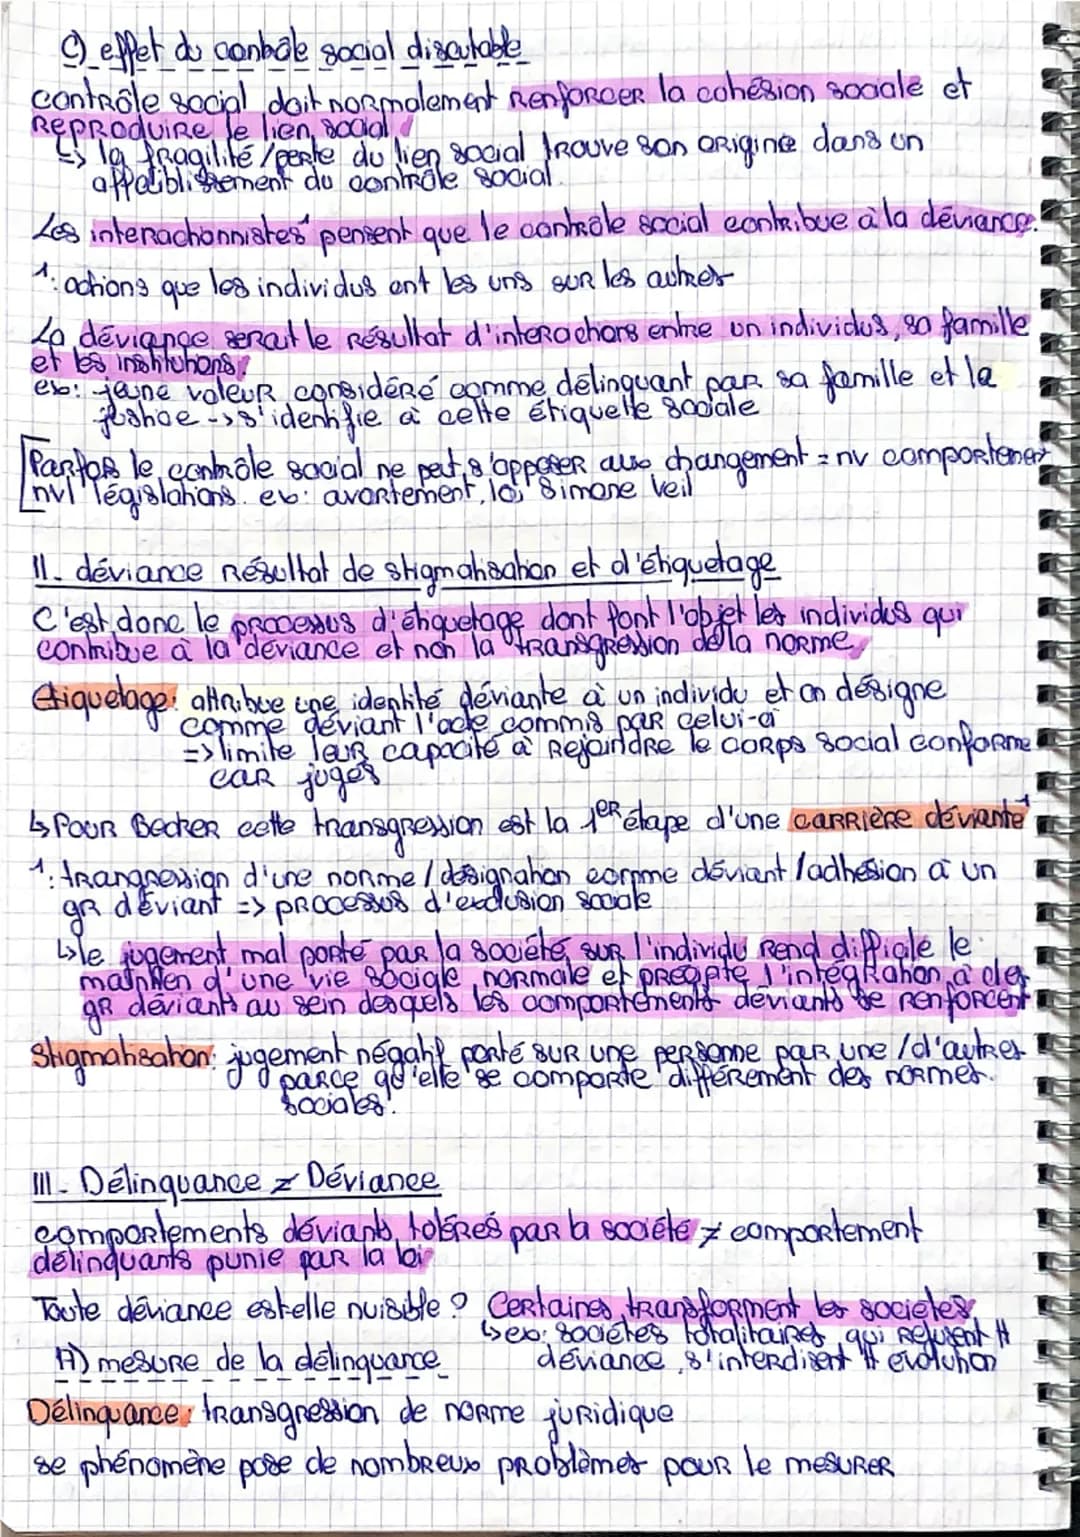 c) effet du contrôle social discutable
contrôle social doit normalement renforcer la cohésion sociale et
reproduire le lien social
↳ la fragilité/perte du lien social trouve son origine dans un
affaiblissement du contrôle social.
Les interactionnistes¹ pensent que le contrôle social contribue à la déviance.
1: actions que les individus ont les uns sur les autres
La déviance serait le résultat d'interactions entre un individus, sa famille
et les institutions.
ex: jeune voleur considéré comme délinquant par sa famille et la
justice -> s'identifie à cette étiquette sociale
Parfois le contrôle social ne peut s'opposer aux changement = nv comportement
nvl législations. ex: avortement, loi Simone Veil
II. déviance résultat de stigmatisation et d'étiquetage
C'est donc le processus d'étiquetage dont font l'objet les individus qui
contribue à la déviance et non la transgression de la norme
Etiquetage: attribue une identité déviante à un individu et on désigne
comme déviant l'acte commis par celui-ci
=> limite leur capacité à rejoindre le corps social conforme
car jugés
↳ Pour Becker cette transgression est la 1er étape d'une carrière déviante¹
1: trangression d'une norme / désignation comme déviant / adhésion à un
gr déviant => processus d'exclusion sociale
↳ le jugement mal porté par la société, sur l'individu rend difficile le
maintien d'une vie sociale normale et précipite l'intégration à des
gr déviants au sein desquels les comportements déviants se renforcent
Stigmatisation: jugement négatif porté sur une personne par une / d'autres
parce qu'elle se comporte différement des normes
sociales.
III. Délinquance ≠ Déviance
comportements déviants tolérés par la société ≠ comportement
délinquants punie par la loi
Toute déviance estelle nuisible ? Certaines transforment les sociétés
↳ ex: sociétés totalitaires qui refusent tt
A) mesure de la délinquance
déviance, s'interdisent tt évolution
Délinquance: transgression de norme juridique
se phénomène pose de nombreux problèmes pour le mesurer